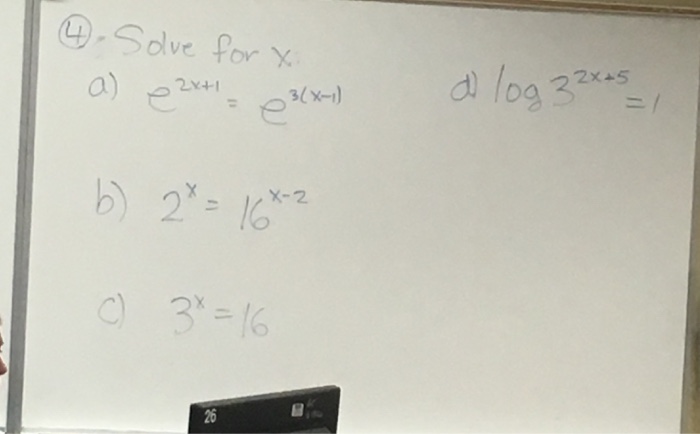 ④. Solve for x:
a) e^{2x+1} = e^{3(x-1)}
d) log 3^{2x+5} = 1
b) 2^x = 16^{x-2}
c) 3^x = 16
26